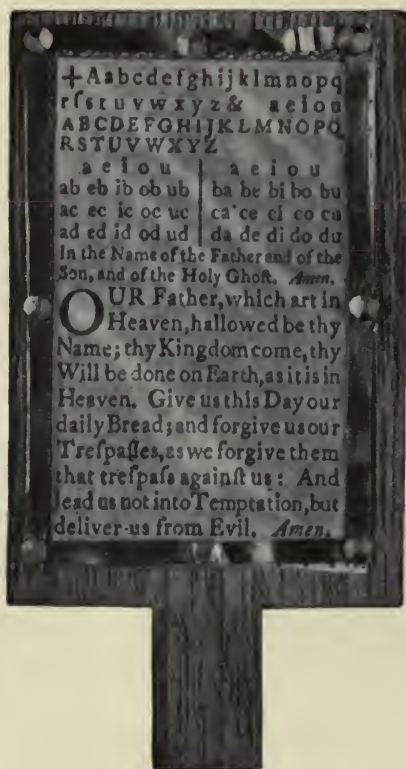 +Aabcdefghijklmnopq
rſstuvwxyz& aeiou
ABCDEFGHIJKLMNOPQ
RSTUVWXYZ
a e i o u | a e i o u
ab eb ib ob ub | ba be bi bo bu
ac ec ic oc uc | ca ce ci co cu
ad ed id od ud | da de di do du
In the Name of the Father and of the
Son, and of the Holy Ghoſt. Amen.
OUR Father, which art in
Heaven, hallowed be thy
Name; thy Kingdom come, thy
Will be done on Earth, as it is in
Heaven. Give us this Day our
daily Bread; and forgive us our
Treſpaſſes, as we forgive them
that treſpaſs againſt us: And
lead us not into Temptation, but
deliver us from Evil. Amen.